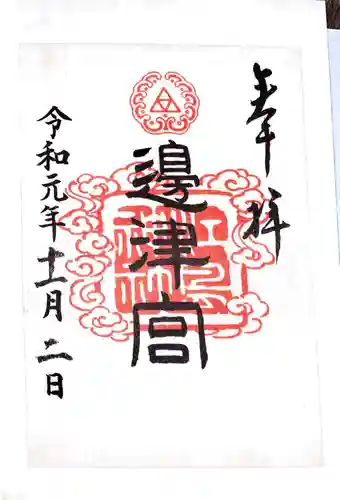 奉拝
邊津宮
令和元年十一月二日